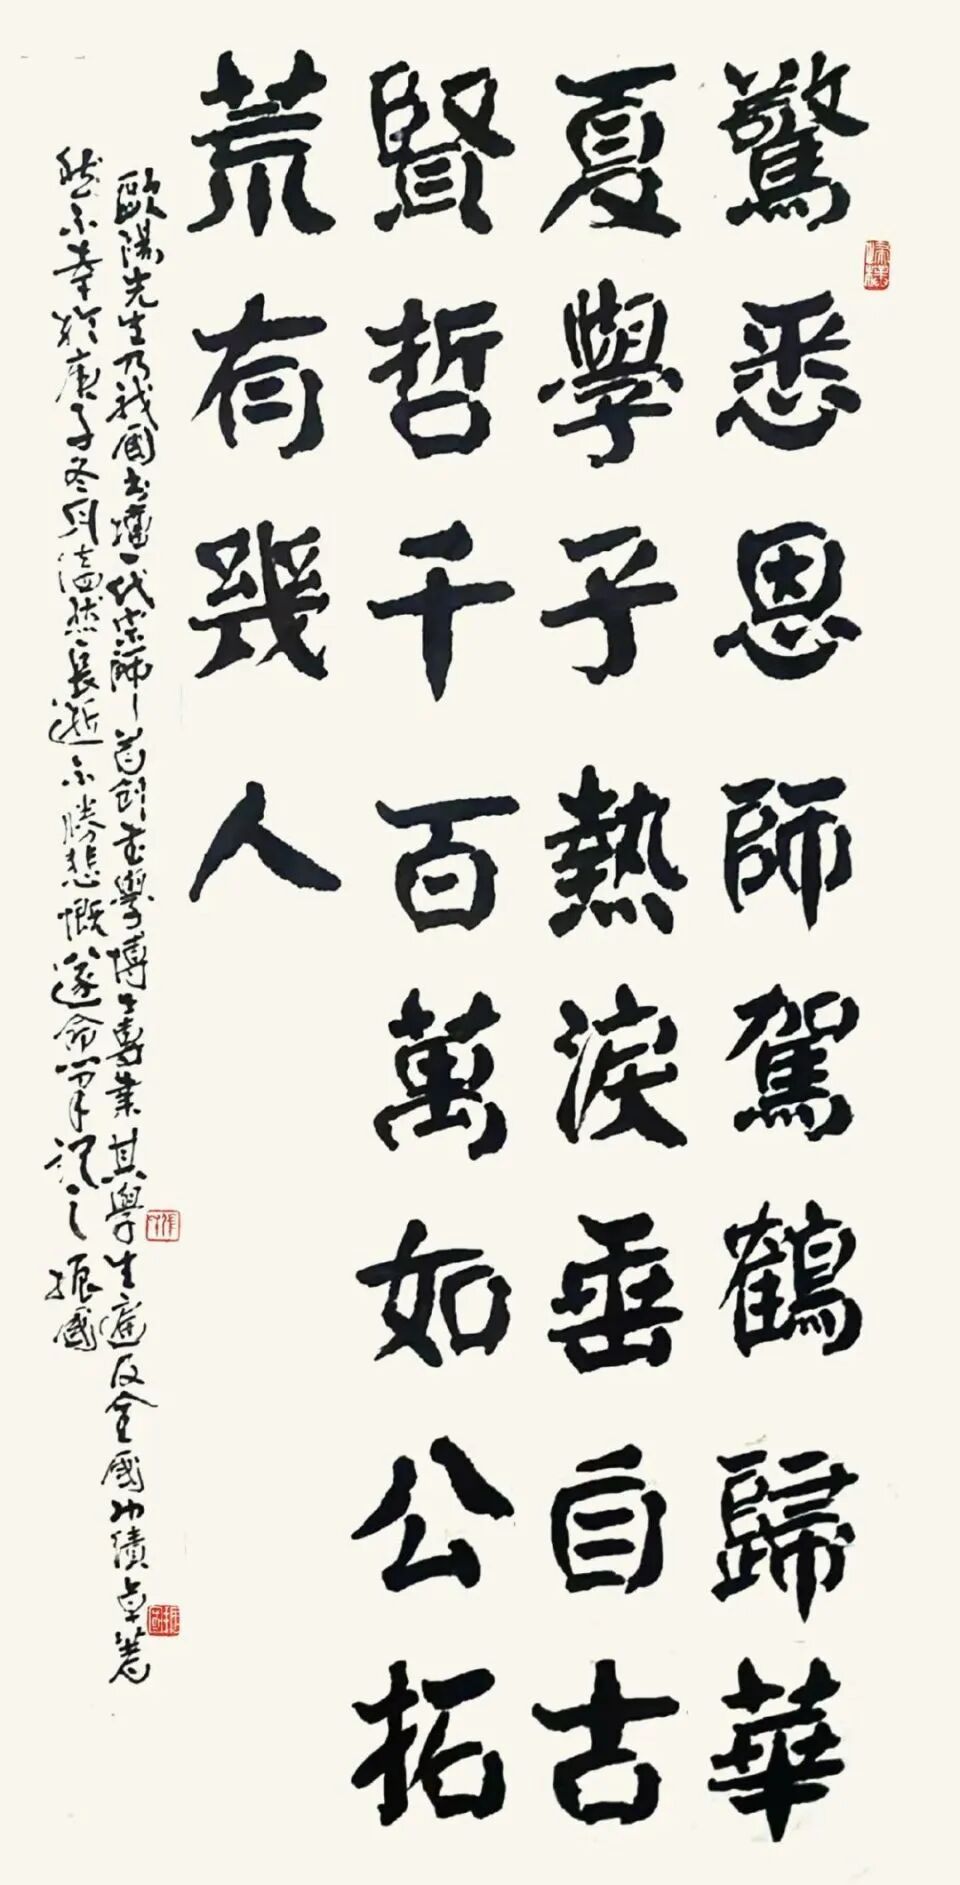 驚悉恩師駕鶴歸華
夏學子熱淚垂自古
賢哲千百萬如公拓
荒有幾人
歐陽先生乃我國書壇一代宗師首創書學博士專業其學生遍及全國功績卓著
然不幸於庚子冬月溘然長逝不勝悲慨遂命筆記之振國